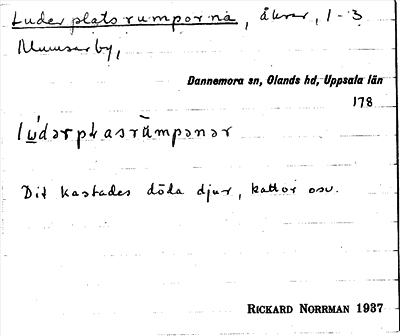 Luderplatsrumporna, åkrar, 1-3
Mumserby,
Dannemora sn, Olands hd, Uppsala län
178
Dit kastades döda djur, kattor osv.
RICKARD NORRMAN 1937